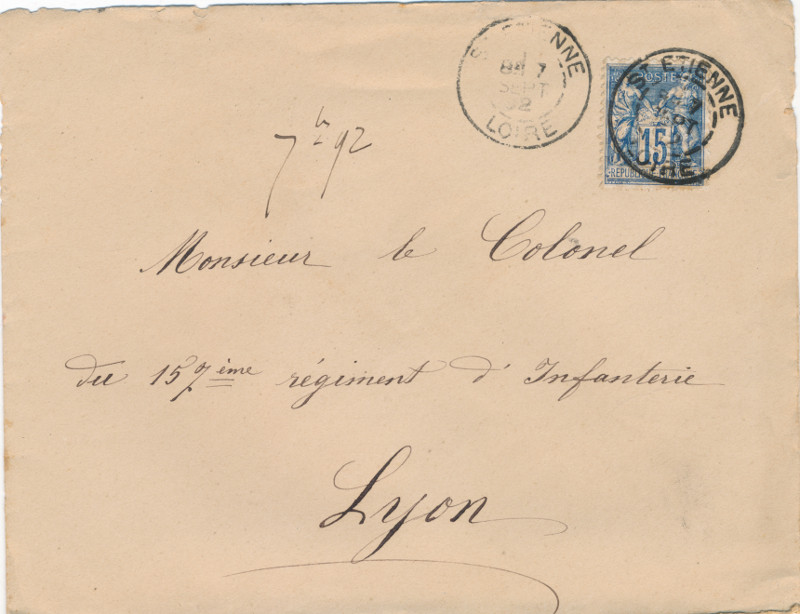 ST ETIENNE
7
SEPT
92
LOIRE
POSTE
15
REPUBLIQUE
ST ETIENNE
LOIRE
7bre 92
Monsieur le Colonel
du 157ème régiment d'Infanterie
Lyon